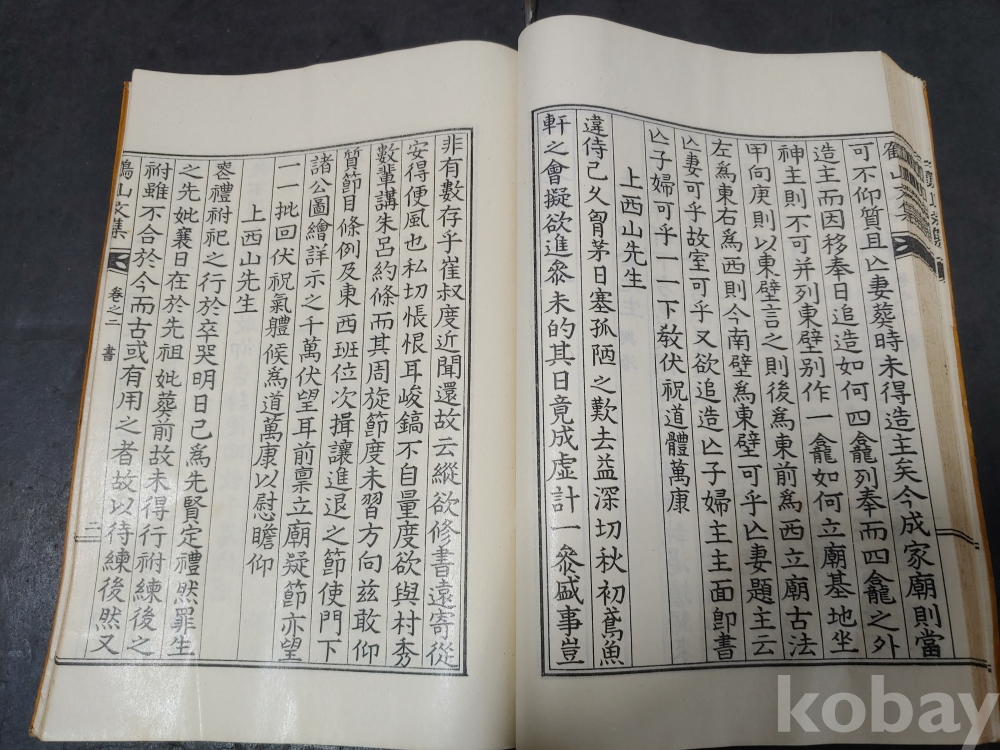 可不仰質且亾妻葬時未得造主矣今成家廟則當
造主而因移奉日追造如何四龕列奉而四龕之外
神主則不可并列東壁别作一龕如何立廟基地坐
甲向庚則以東壁言之則後爲東前爲西立廟古法
左爲東右爲西則今南壁爲東壁可乎亾妻題主云
亾妻可乎故室可乎又欲追造亾子婦主主面卽書
亾子婦可乎一一下敎伏祝道體萬康
上西山先生
違侍已久胷茅日塞孤陋之歎去益深切秋初鳶魚
軒之會擬欲進叅未的其日竟成虛計一叅盛事豈
非有數存乎崔叔度近聞還故云縱欲修書遠寄從
安得便風也私切悵恨耳峻鎬不自量度欲與村秀
數輩講朱呂約條而其周旋節度未習方向兹敢仰
質節目條例及東西班位次揖讓進退之節使門下
諸公圖繪詳示之千萬伏望耳前禀立廟疑節亦望
一一批回伏祝氣體候爲道萬康以慰瞻仰
上西山先生
喪禮祔祀之行於卒哭明日已爲先賢定禮然罪生
之先妣襄日在於先祖妣葬前故未得行祔練後之
祔雖不合於今而古或有用之者故以待練後然又
鶴山文集 卷之二 書 二
kobay